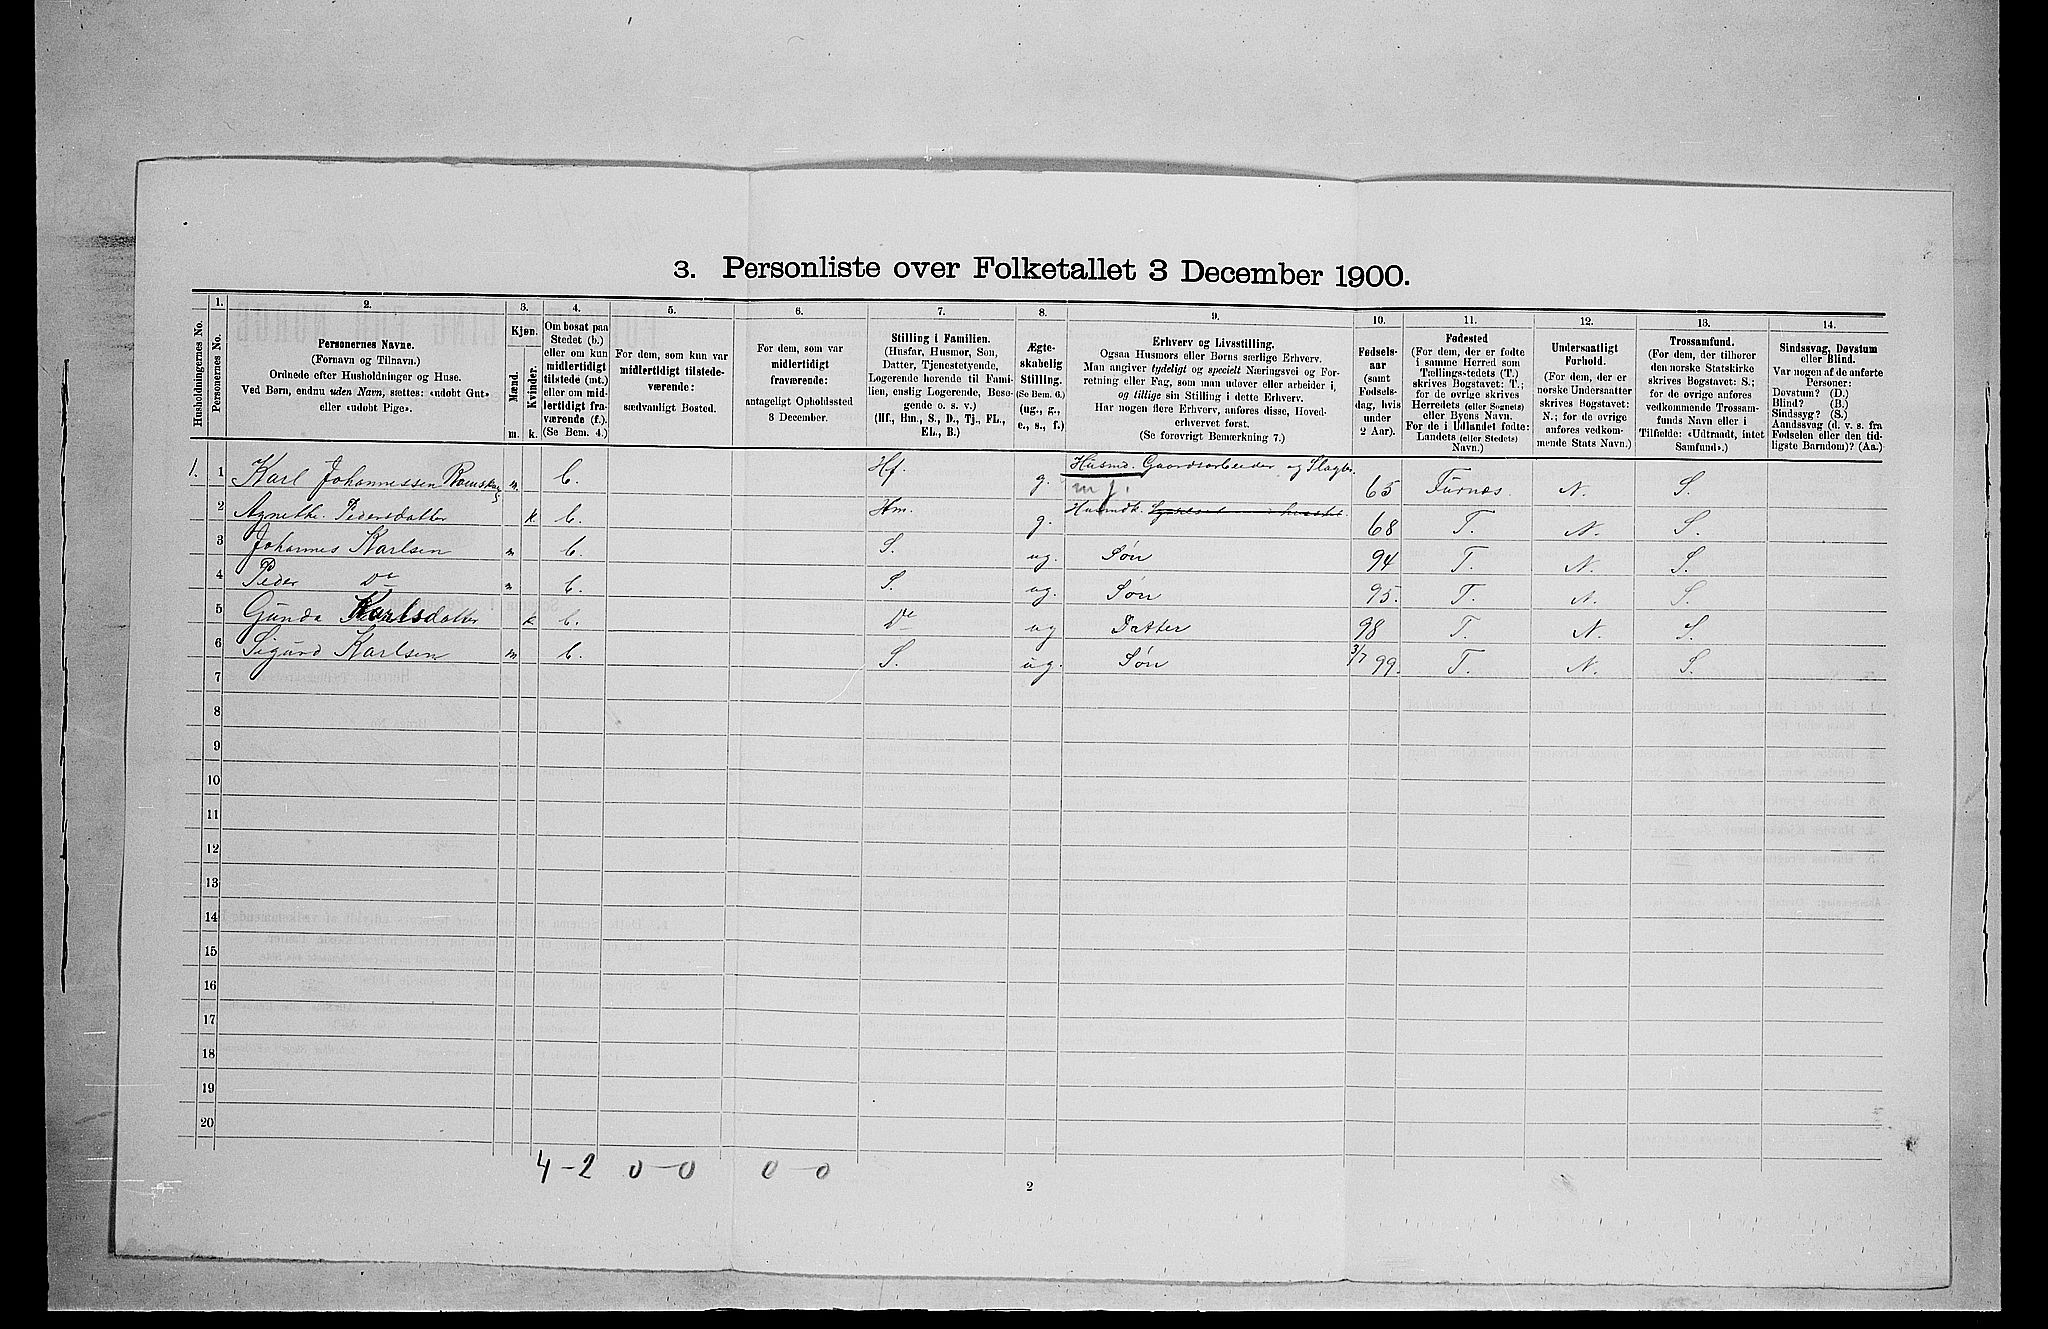 3. Personliste over Folketallet 3 December 1900.
Husholdningernes No.
1.
Personernes No.
2.
Personernes Navne.
(Fornavn og Tilnavn.)
Ordnede efter Husholdninger og Huse.
Ved Børn, endnu uden Navn, sættes: «udøbt Gut»
eller «udøbt Pige».
3.
Kjøn.
Mænd.
m.
Kvinder.
k.
4.
Om bosat paa
Stedet (b.)
eller om kun
midlertidigt
tilstede (mt.)
eller om mid-
lertidigt fra-
værende (f.).
(Se Bem. 4.)
5.
For dem, som kun var
midlertidigt tilstede-
værende:
sædvanligt Bosted.
6.
For dem, som var
midlertidigt
fraværende:
antageligt Opholdssted
3 December.
7.
Stilling i Familien.
(Husfar, Husmor, Søn,
Datter, Tjenestetyende,
Logerende hørende til Fami-
lien, enslig Logerende, Besø-
gende o. s. v.)
(Hf., Hm., S., D., Tj., FL.,
EL., B.)
8.
Ægte-
skabelig
Stilling.
(Se Bem. 6.)
(ug., g.,
e., s., f.)
9.
Erhverv og Livsstilling.
Ogsaa Husmors eller Børns særlige Erhverv.
Man angiver tydeligt og specielt Næringsvei og For-
retning eller Fag, som man udøver eller arbeider i,
og tillige sin Stilling i dette Erhverv.
Har nogen flere Erhverv, anføres disse, Hoved-
erhvervet først.
(Se forøvrigt Bemærkning 7.)
10.
Fødsels-
aar
(samt
Fødsels-
dag, hvis
under
2 Aar).
11.
Fødested
(For dem, der er fødte
i samme Herred som
Tællings-stedets (T.)
skrives Bogstavet: T.;
for de øvrige skrives
Herredets (eller Sognets)
eller Byens Navn.
For de i Udlandet fødte:
Landets (eller Stedets)
Navn.)
12.
Undersaatligt
Forhold.
(For dem, der er
norske Undersaatter
skrives Bogstavet:
N.; for de øvrige
anføres vedkom-
mende Stats Navn.)
13.
Trossamfund.
(For dem, der tilhører
den norske Statskirke
skrives Bogstavet: S.;
for de øvrige anføres
vedkommende Trossam-
funds Navn eller i
Tilfælde: «Udtraadt, intet
Samfund».)
14.
Sindssvag, Døvstum
eller Blind.
Var nogen af de anførte
Personer:
Døvstum? (D.)
Blind? (B.)
Sindssyg? (S.)
Aandssvag (d. v. s. fra
Fødselen eller den tid-
ligste Barndom)? (Aa.)
1. 1 Karl Johannessen m. b. Hf. g. Husmd. Gaardsarbeider og Slagter 65 Furnæs N. S.
m f.
2 Agnethe Pedersdatter k. b. Hm. g. 68 T. N. S.
3 Johannes Karlsen m b. S. ug. Søn 94 T. N. S.
4 Peder Do m b. S. ug. Søn 95. T. N. S.
5 Gunda Karlsdatter k b. De ug Datter 98 T. N. S.
6 Sigurd Karlsen m b. S. ug. Søn 3/7 99. T. N. S.
7
8
9
10
11
12
13
14
15
16
17
18
19
20
4-2 0-0 0-0
2